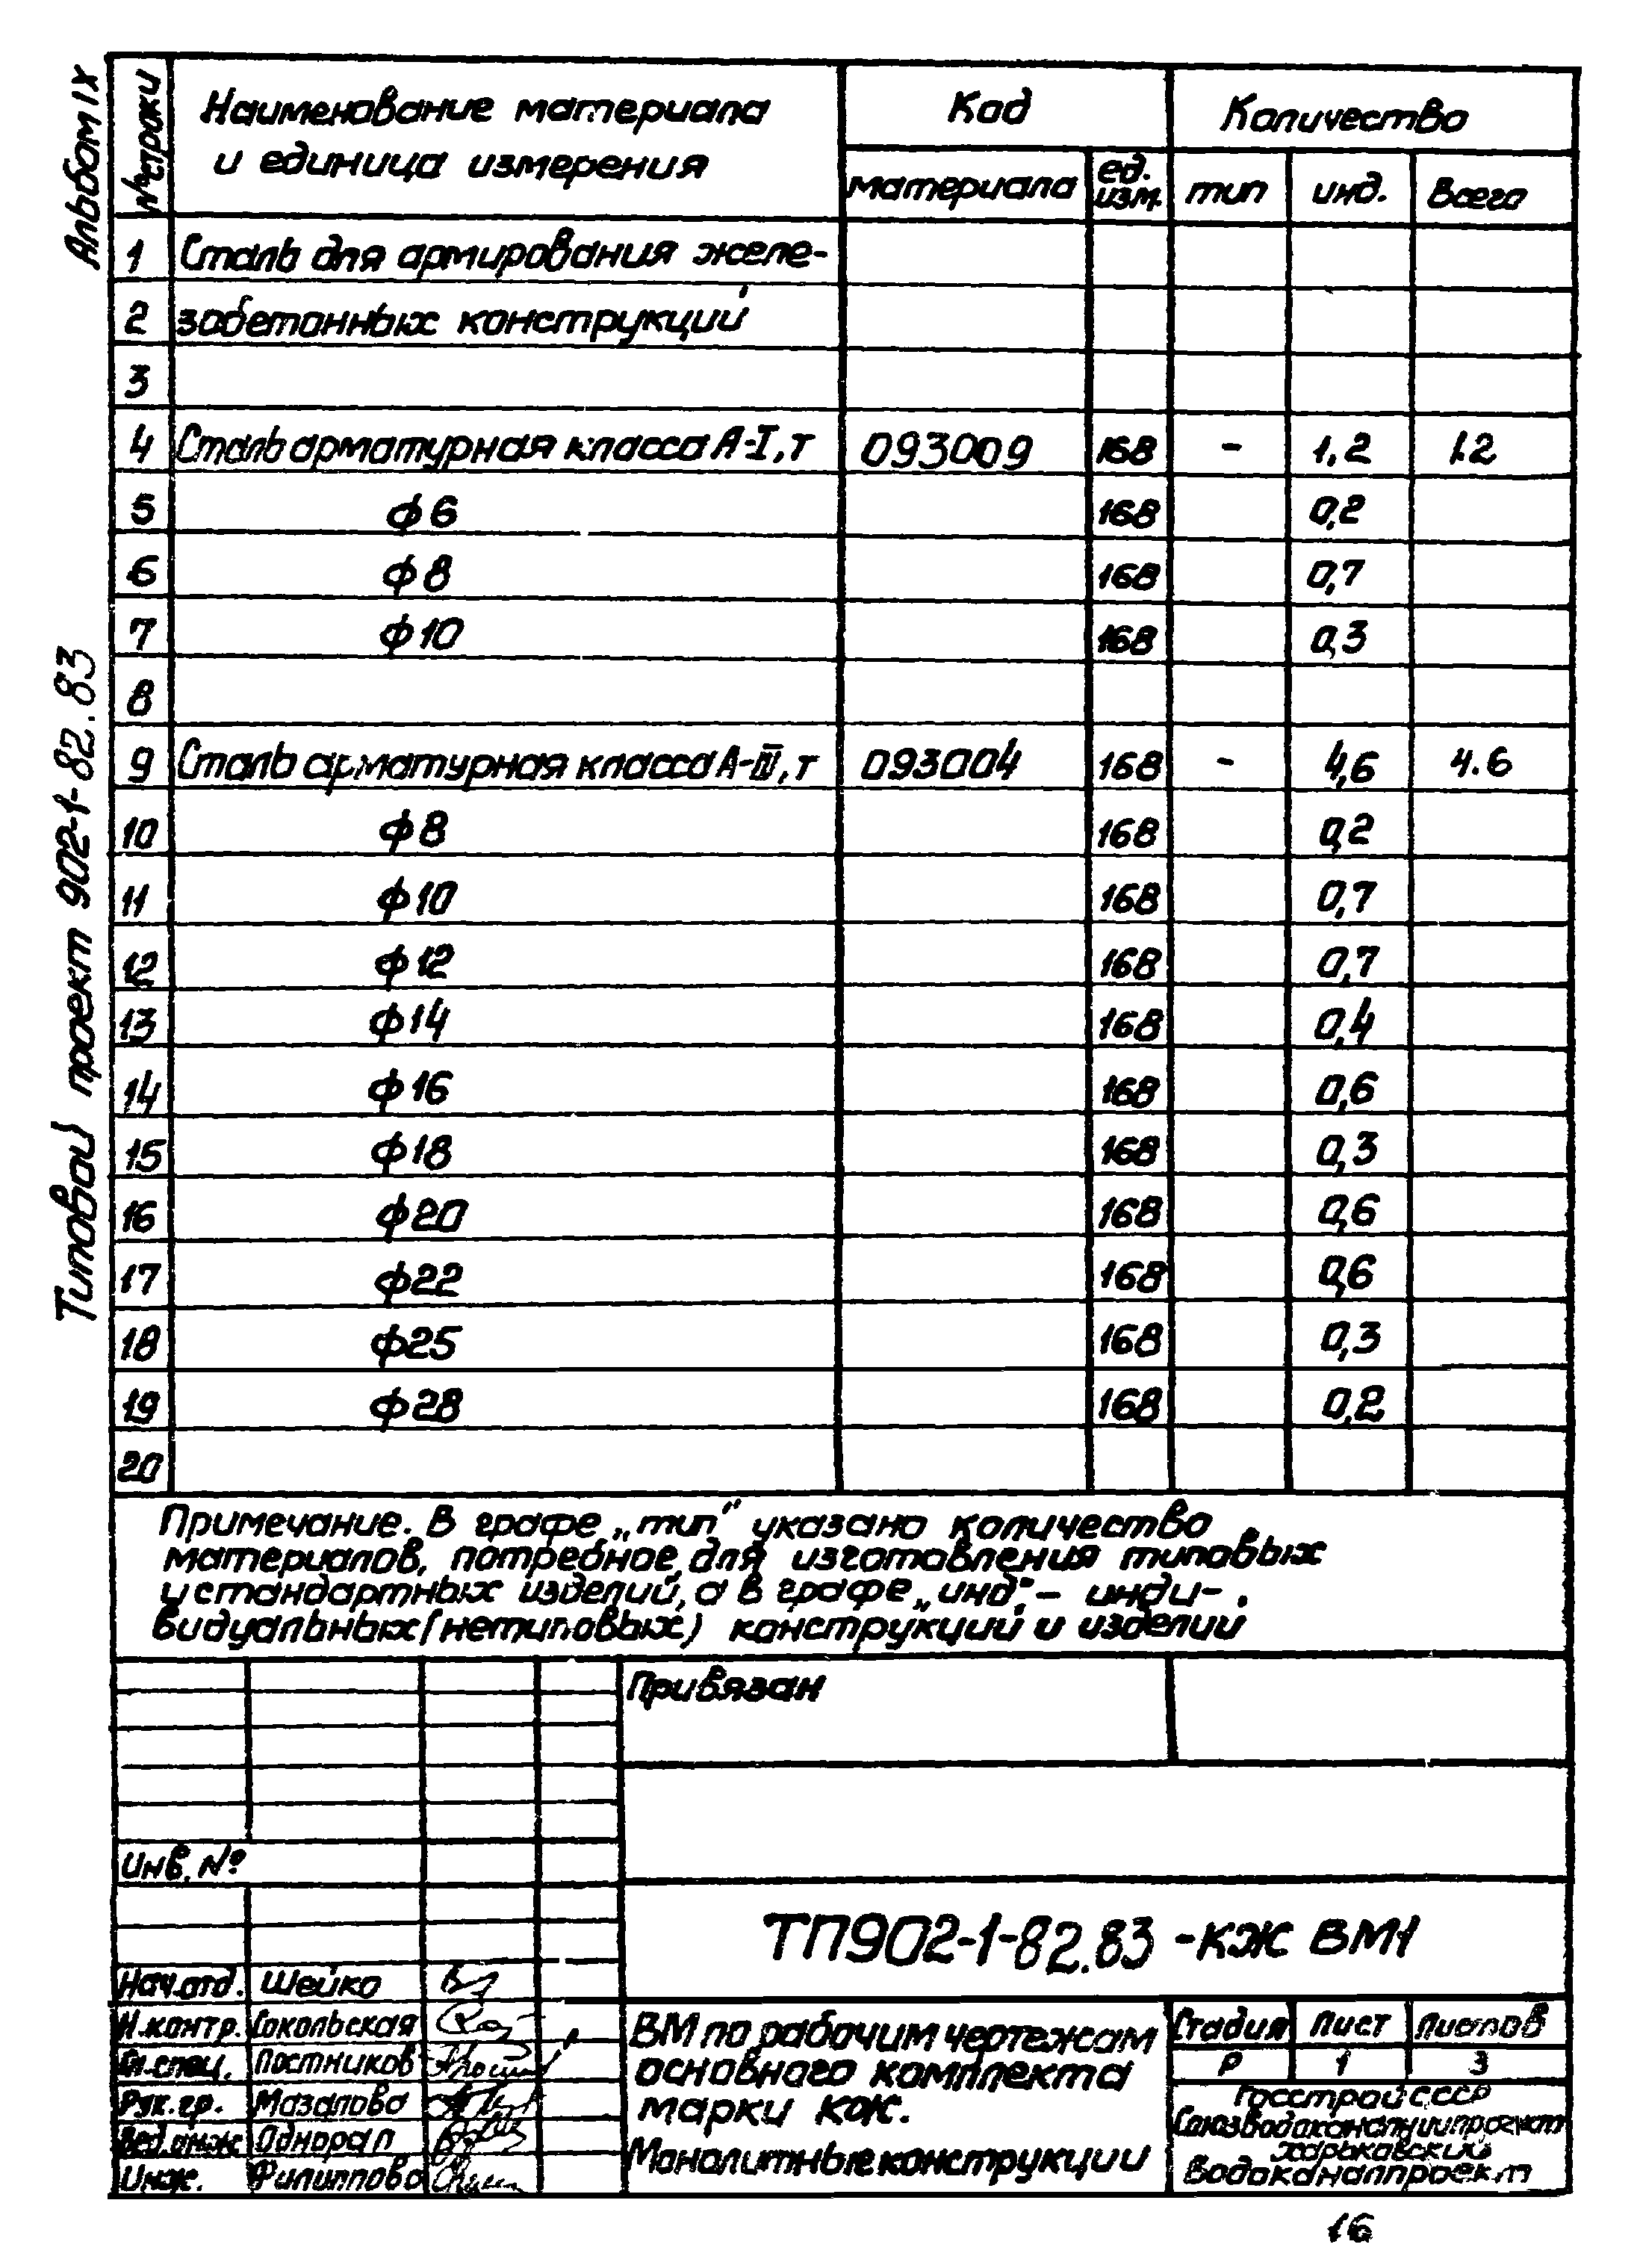 Альбом IX
Типовой проект 902-1-82.83
№ строки
Наименование материала
и единица измерения
Код
Количество
материала
ед.
изм.
тип
инд.
Всего
1 Сталь для армирования желе-
2 забетонных конструкций
3
4 Сталь арматурная класса А-I, т 093009 168 - 1,2 1.2
5 ф6 168 0,2
6 ф8 168 0,7
7 ф10 168 0,3
8
9 Сталь арматурная класса А-III, т 093004 168 - 4,6 4.6
10 ф8 168 0,2
11 ф10 168 0,7
12 ф12 168 0,7
13 ф14 168 0,4
14 ф16 168 0,6
15 ф18 168 0,3
16 ф20 168 0,6
17 ф22 168 0,6
18 ф25 168 0,3
19 ф28 168 0,2
20
Примечание. В графе „тип" указано количество
материалов, потребное для изготовления типовых
и стандартных изделий, а в графе „инд." – инди-
видуальных (нетиповых) конструкций и изделий
Привязан
Инв. №
ТП902-1-82.83 -КЖ ВМ1
Нач.отд. Шейко
Н.контр. Сокольская
Гл.спец. Постников
Рук.гр. Мазалова
Вед.инж Однорал
Инж. Филиппова
ВМ по рабочим чертежам
основного комплекта
марки КЖ.
Монолитные конструкции
Стадия Лист Листов
Р 1 3
Госстрой СССР
Союзводоканалниипроект
Харьковский
Водоканалпроект
16